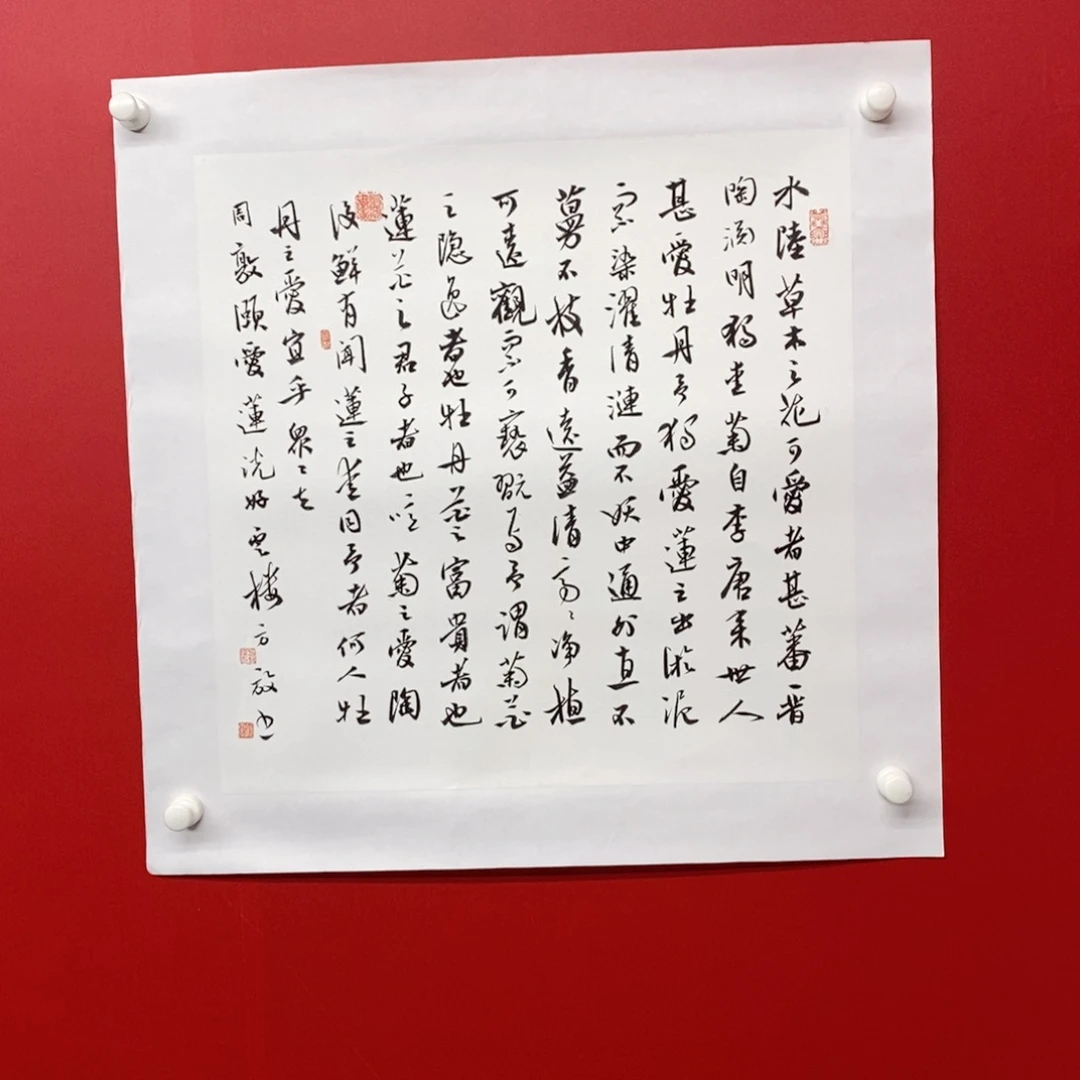 水陸草木之花可愛者甚蕃晋
陶渊明独爱菊自李唐来世人
甚愛牡丹予独愛蓮之出淤泥
而不染濯清漣而不妖中通外直不
蔓不枝香遠益清亭〻净植
可遠觀而不可褻翫焉予謂菊花
之隐逸者也牡丹花之富貴者也
蓮花之君子者也噫菊之愛陶
後鮮有聞蓮之爱同予者何人牡
丹之愛宜乎眾矣
周敦頤愛蓮説好雲楼方